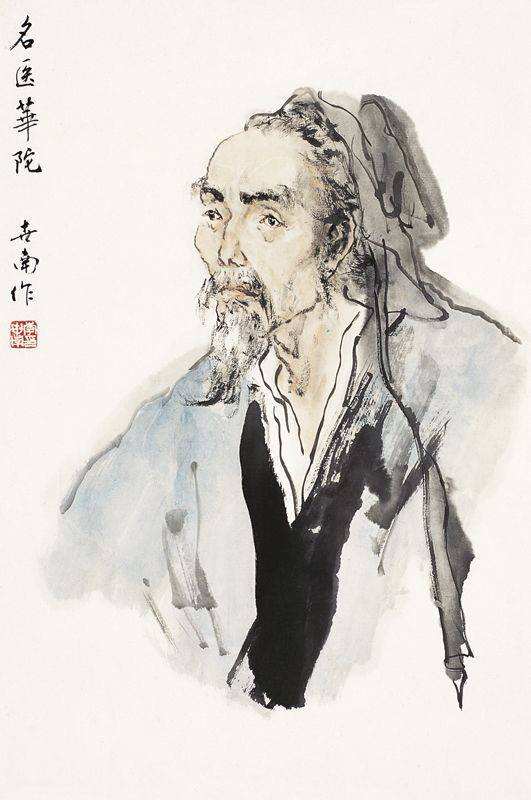 名医華陀
世南作